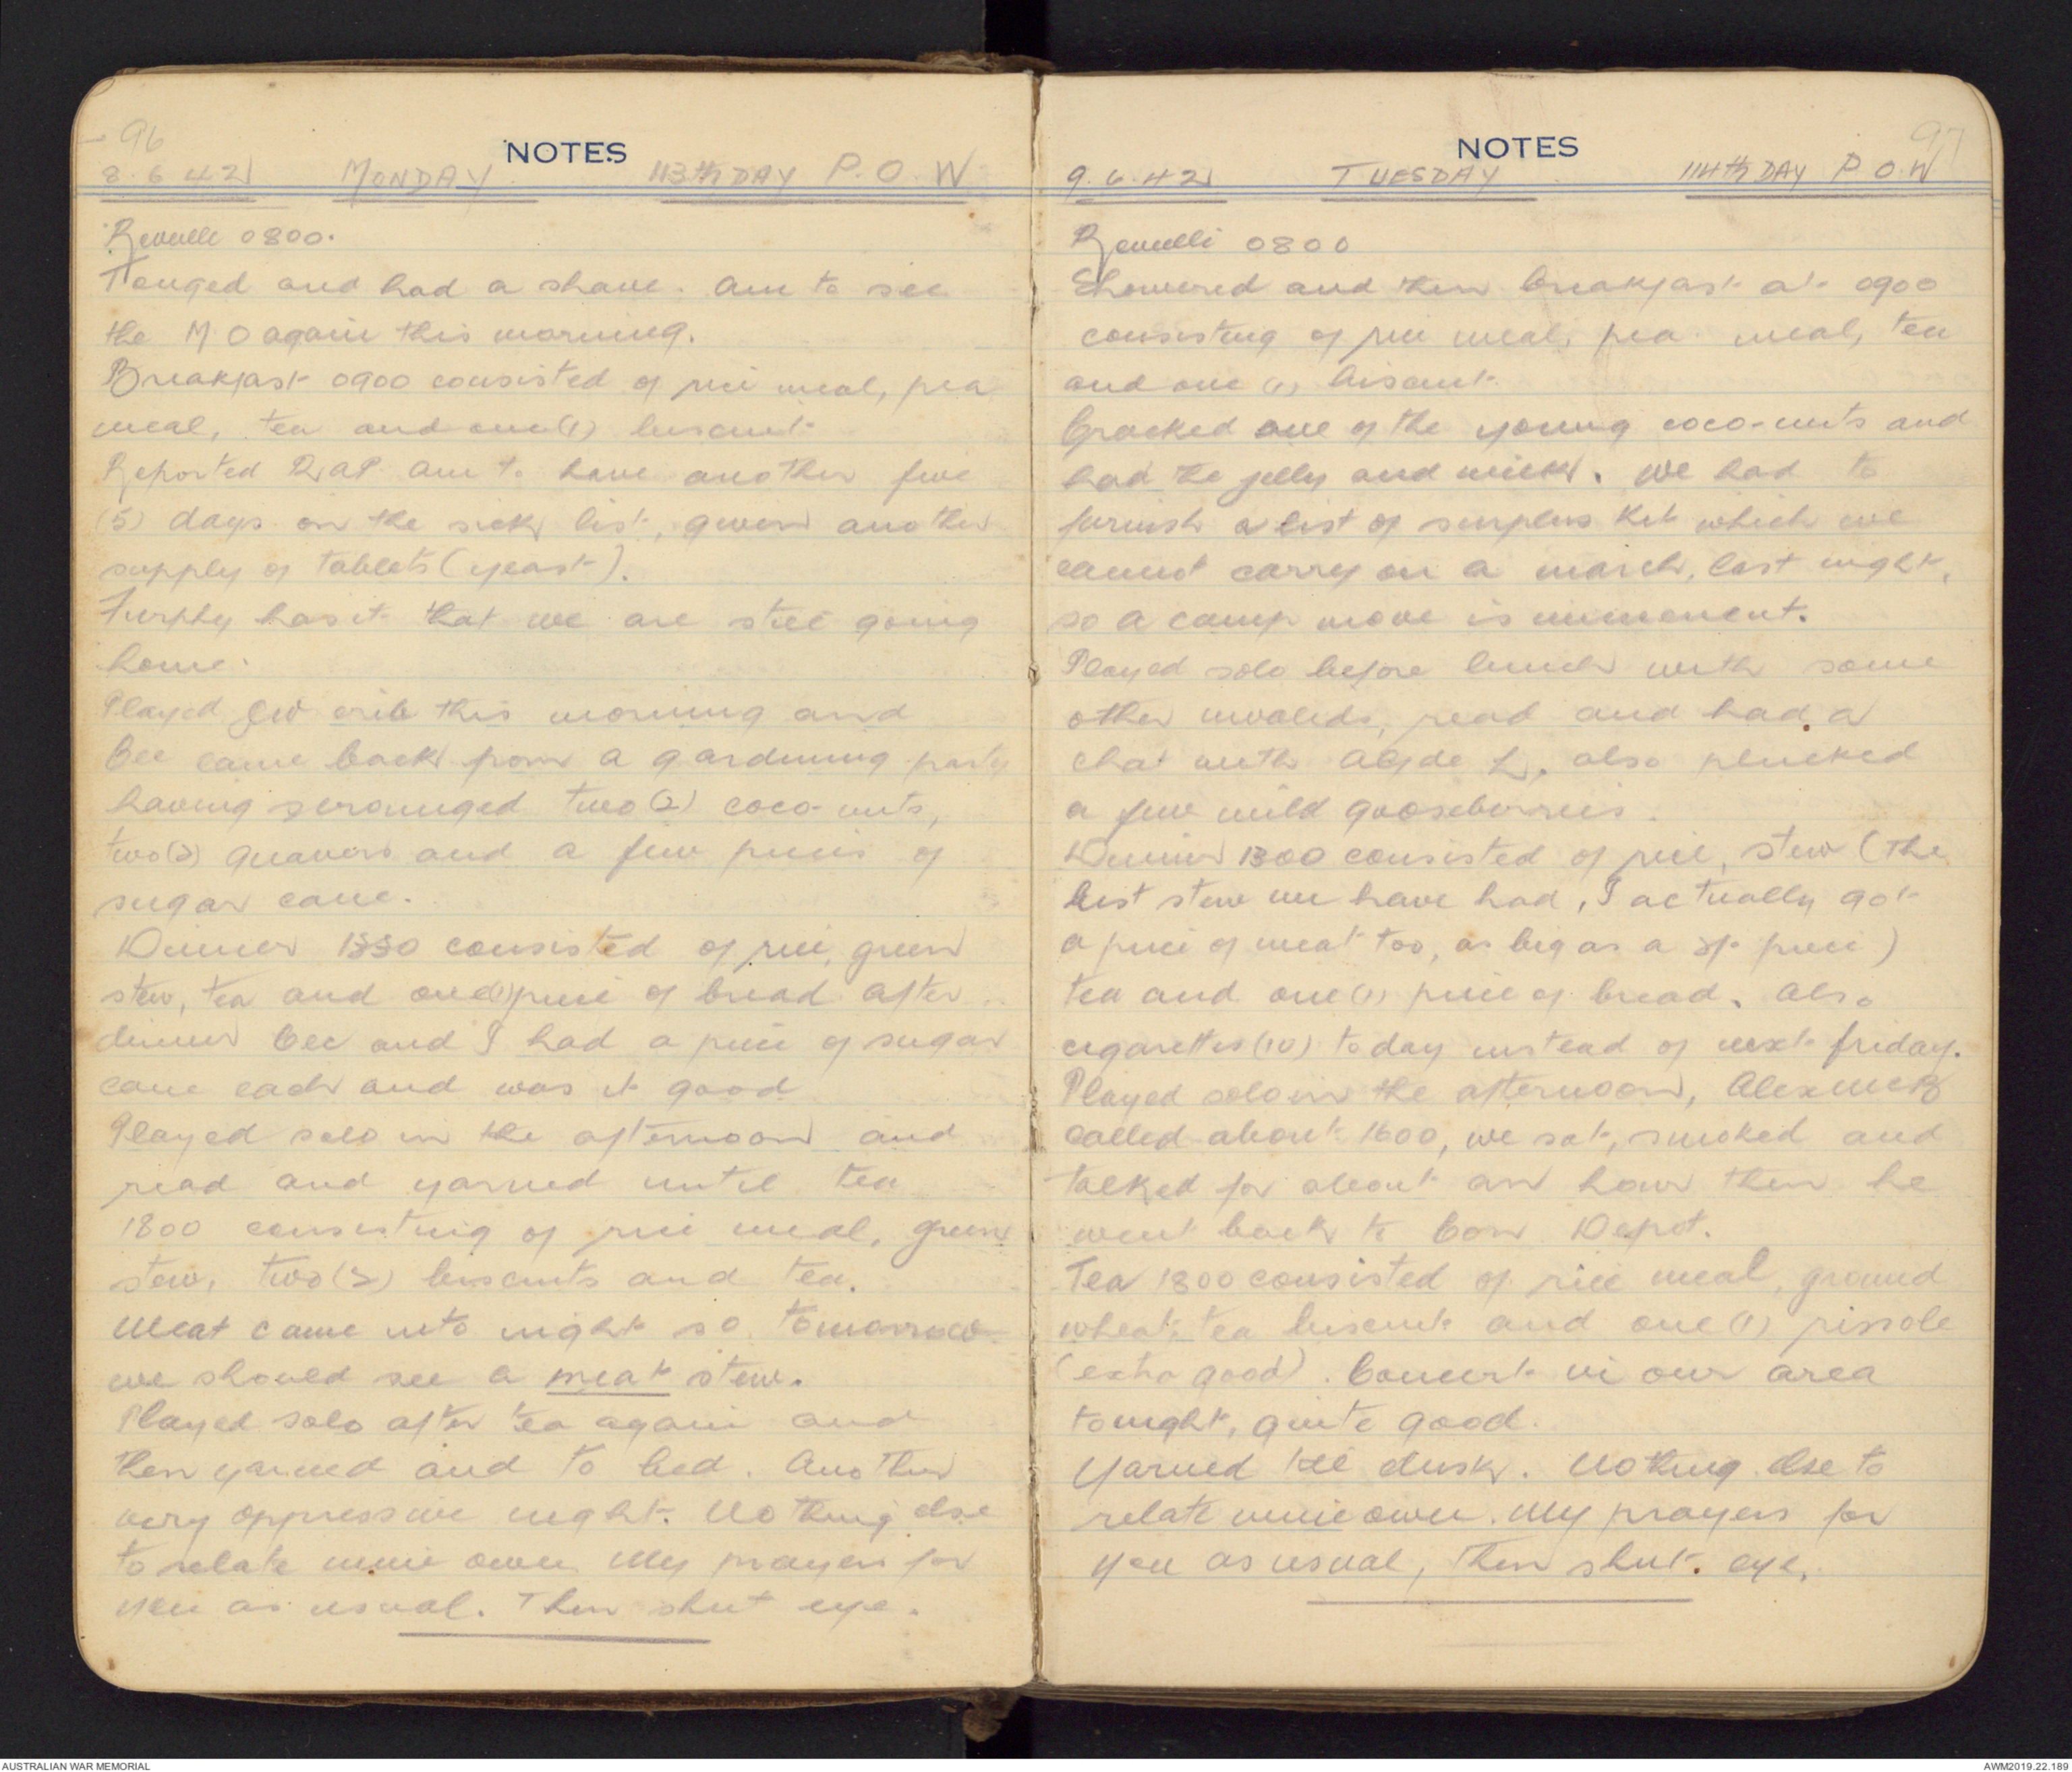 96
NOTES
8.6.42 MONDAY 113th DAY P.O.W
Reveille 0800.
Tonged and had a shave. Am to see
the M O again this morning.
Breakfast 0900 consisted of rice meal, pea
meal, tea and one(1) biscuit
Reported RAP. am to have another five
(5) days on the sick list, given another
supply of tablets (yeast).
Furphy has it that we are still going
home.
Played crib this morning and
Cec came back from a gardening party
having scrounged two(2) coco-nuts,
two(2) guavers and a few pieces of
sugar cane.
Dinner 1330 consisted of rice, green
stew, tea and one(1) piece of bread. After
dinner Cec and I had a piece of sugar
cane each and was it good
Played solo in the afternoon and
read and yarned until tea
1800 consisting of rice meal, green
stew, two(2) biscuits and tea.
Meat came into night so tomorrow
we should see a meat stew.
Played solo after tea again and
then yarned and to bed. Another
very oppressive night. Nothing else
to relate mine own. My prayers for
you as usual. Then shut eye.
97
NOTES
9.6.42 TUESDAY 114th DAY P.O.W
Reveille 0800
Showered and then breakfast at 0900
consisting of rice meal, pea meal, tea
and one (1) biscuit.
Cracked one of the young coco-nuts and
had the jelly and milk. We had to
furnish a list of surplus kit which we
cannot carry on a march, last night,
so a camp move is immenent.
Played solo before lunch with some
other invalids, read and had a
chat with Clyde L, also plucked
a few wild gooseberries.
Dinner 1300 consisted of rice, stew (the
best stew we have had, I actually got
a piece of meat too, as big as a 3p piece)
tea and one (1) piece of bread. Also
cigarettes (10) today instead of next friday.
Played solo in the afternoon, Alex McK
called about 1600, we sat, smoked and
talked for about an hour then he
went back to Con Depot.
Tea 1800 consisted of rice meal, ground
wheat, tea biscuit and one (1) rissole
(extra good). Concert in our area
tonight, quite good.
Yarned till dusk. Nothing else to
relate mine own. My prayers for
you as usual, then shut. eye.
AUSTRALIAN WAR MEMORIAL
AWM2019.22.189